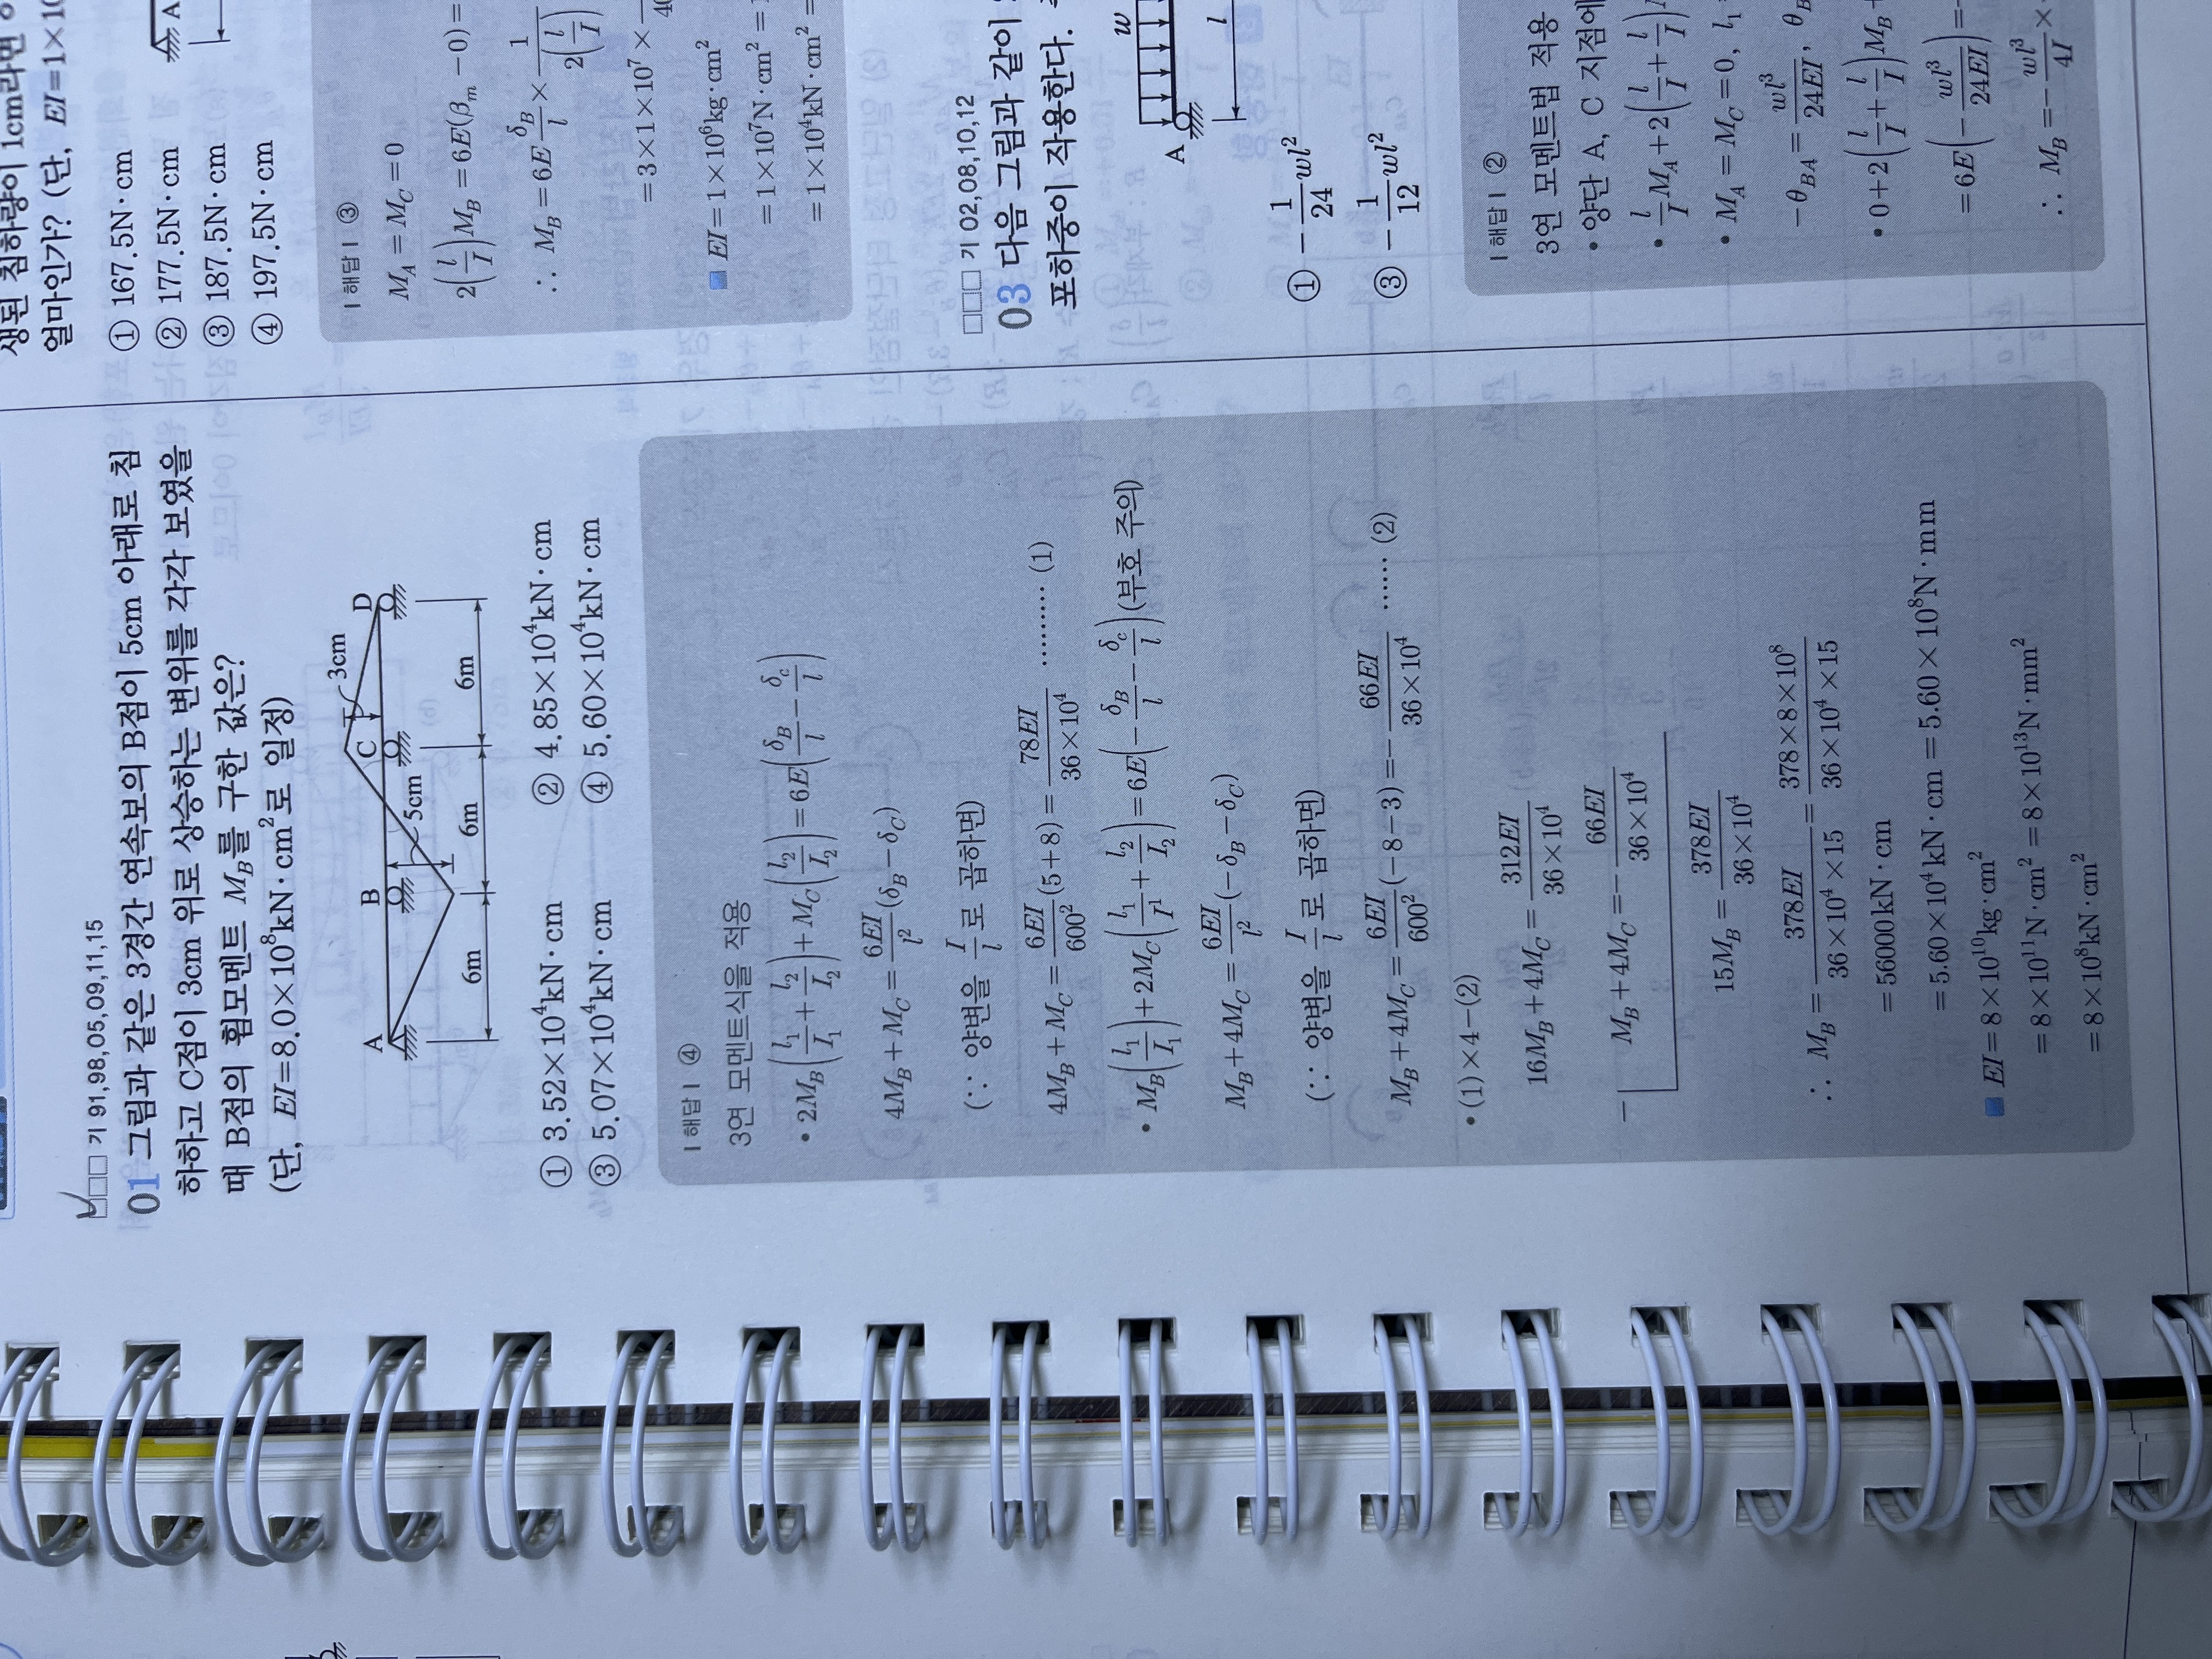 □□□ 기 91,98,05,09,11,15
01 그림과 같은 3경간 연속보의 B점이 5cm 아래로 침
하하고 C점이 3cm 위로 상승하는 변위를 각각 보였을
때 B점의 휨모멘트 M_B를 구한 값은?
(단, EI=8.0×10⁸kN·cm²로 일정)
A B C D
5cm 3cm
6m 6m 6m
① 3.52×10⁴kN·cm ② 4.85×10⁴kN·cm
③ 5.07×10⁴kN·cm ④ 5.60×10⁴kN·cm
| 해답 | ④
3연 모멘트식을 적용
• 2M_B(l₁/I₁+l₂/I₂)+M_C(l₂/I₂)=6E(δ_B/l-δ_c/l)
4M_B+M_C=6EI/l²(δ_B-δ_C)
(∵ 양변을 I/l로 곱하면)
4M_B+M_C=6EI/600²(5+8)=78EI/36×10⁴ ………(1)
• M_B(l₁/I₁)+2M_C(l₁/I¹+l₂/I₂)=6E(-δ_B/l-δ_c/l)(부호 주의)
M_B+4M_C=6EI/l²(-δ_B-δ_C)
(∵ 양변을 I/l로 곱하면)
M_B+4M_C=6EI/600²(-8-3)=-66EI/36×10⁴ ……(2)
• (1)×4-(2)
16M_B+4M_C=312EI/36×10⁴
- M_B+4M_C=-66EI/36×10⁴
15M_B=378EI/36×10⁴
∴ M_B=378EI/36×10⁴×15=378×8×10⁸/36×10⁴×15
=56000kN·cm
=5.60×10⁴kN·cm=5.60×10⁸N·mm
■ EI=8×10¹⁰kg·cm²
=8×10¹¹N·cm²=8×10¹³N·mm²
=8×10⁸kN·cm²
생된 침하량이 1cm라면
얼마인가? (단, EI=1×10
① 167.5N·cm
② 177.5N·cm
③ 187.5N·cm
④ 197.5N·cm
A
| 해답 | ③
M_A=M_C=0
2(l/I)M_B=6E(β_m-0)=
∴ M_B=6E δ_B/l×1/2(l/I)
=3×1×10⁷×
■ EI=1×10⁶kg·cm²
=1×10⁷N·cm²=
=1×10⁴kN·cm²=
□□□ 기 02,08,10,12
03 다음 그림과 같이
포하중이 작용한다.
w
A
l
① -1/24wl²
③ -1/12wl²
| 해답 | ②
3연 모멘트법 적용
• 양단 A, C 지점에
• l/I M_A+2(l/I+l/I)
• M_A=M_C=0, l₁
-θ_BA=wl³/24EI, θ_B
• 0+2(l/I+l/I)M_B+
=6E(-wl³/24EI)=-
∴ M_B=-wl³/4I×